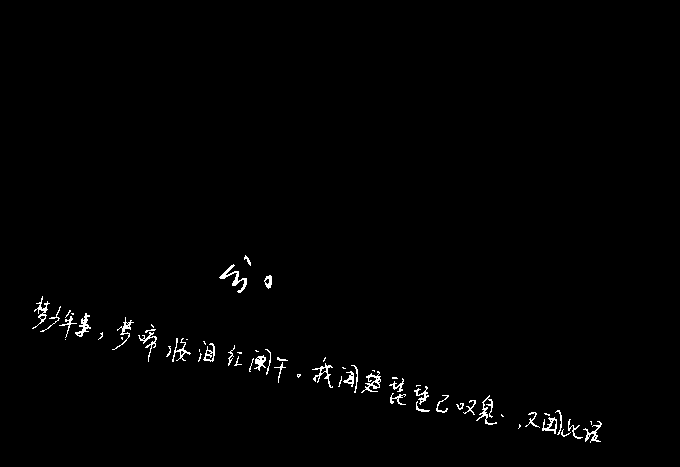 梦少年事，梦啼妆泪红阑干。我闻琵琶已叹息，又闻此语